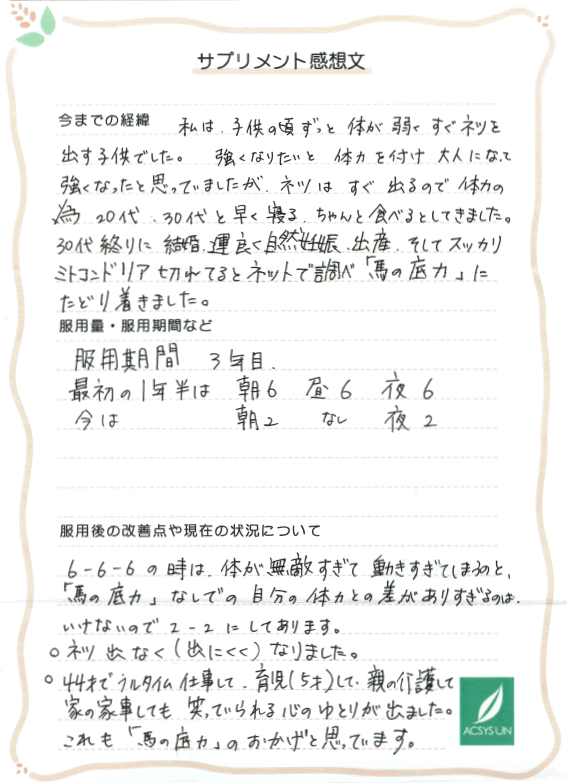 サプリメント感想文
今までの経緯 私は、子供の頃ずっと 体が弱く すぐネツを
出す子供でした。 強くなりたいと 体力を付け 大人になって
強くなったと思っていましたが、ネツは すぐ 出るので 体力の
為 20代、30代と早く寝る、ちゃんと食べるとしてきました。
30代終りに 結婚、運良く自然妊娠、出産、そしてスッカリ
ミトコンドリア切れてるとネットで調べ「馬の底力」に
たどり着きました。
服用量・服用期間など
服用期間 3年目.
最初の1年半は 朝6 昼6 夜6
今は 朝2 なし 夜2
服用後の改善点や現在の状況について
6-6-6の時は、体が無敵すぎて 動きすぎてしまうのと、
「馬の底力」なしでの 自分の体力との差がありすぎるのは、
いけないので2-2にしてあります。
○ネツ出なく(出にくく)なりました。
○44才でフルタイム仕事して、育児(5才)して、親の介護して
家の家事しても 笑っていられる心のゆとりが出ました。
これも「馬の底力」のおかげと思っています。
ACSYSUN